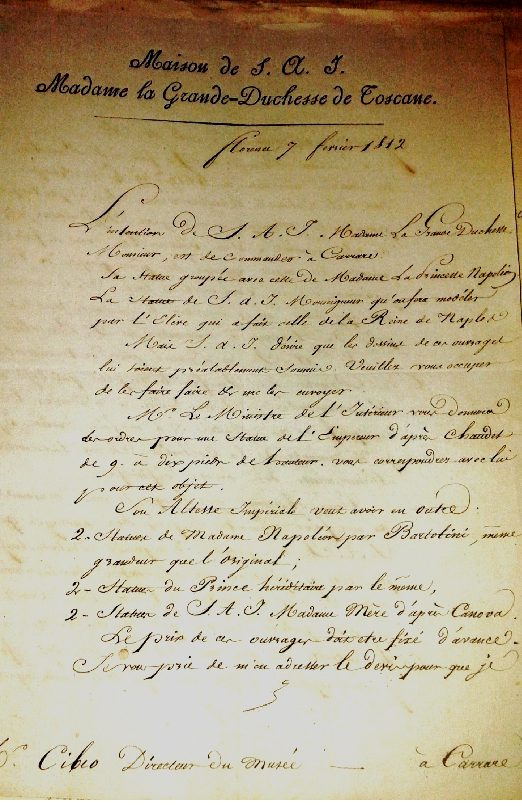 Maison de S. A. I.
Madame la Grande-Duchesse de Toscane.
florence 7 fevrier 1812
L'intention de S. A. I. Madame La Grande Duchesse
Monsieur, est de commander à Carrare
Sa Statue groupée avec celle de Madame La Princesse Napoléon
La Statue de S. A. I. Monseigneur qu'on fera modéler
par l'Elève qui a fait celle de la Reine de Naples
Mais S. A. I. désire que les dessins de ces ouvrages
lui soient préalablement soumis. Veuillez vous occuper
de les faire faire & me les envoyer.
Mr. Le Ministre de l'Intérieur vous donnera
des ordres pour une Statue de l'Empereur d'après Chaudet
de 9. à dix pieds de hauteur. vous correspondrez avec lui
pour cet objet.
Son Altesse Impériale veut avoir en outre
2 - Statues de Madame Napoléon par Bartolini, même
grandeur que l'original;
2 - Statues du Prince héréditaire par le même,
2 - Statues de S A. I. Madame Mère d'après Canova.
Le prix de ces ouvrages doit etre fixé d'avance.
Je vous prie de m'en adresser le devis pour que je
Mr. Cibeo Directeur du Musée — à Carrare